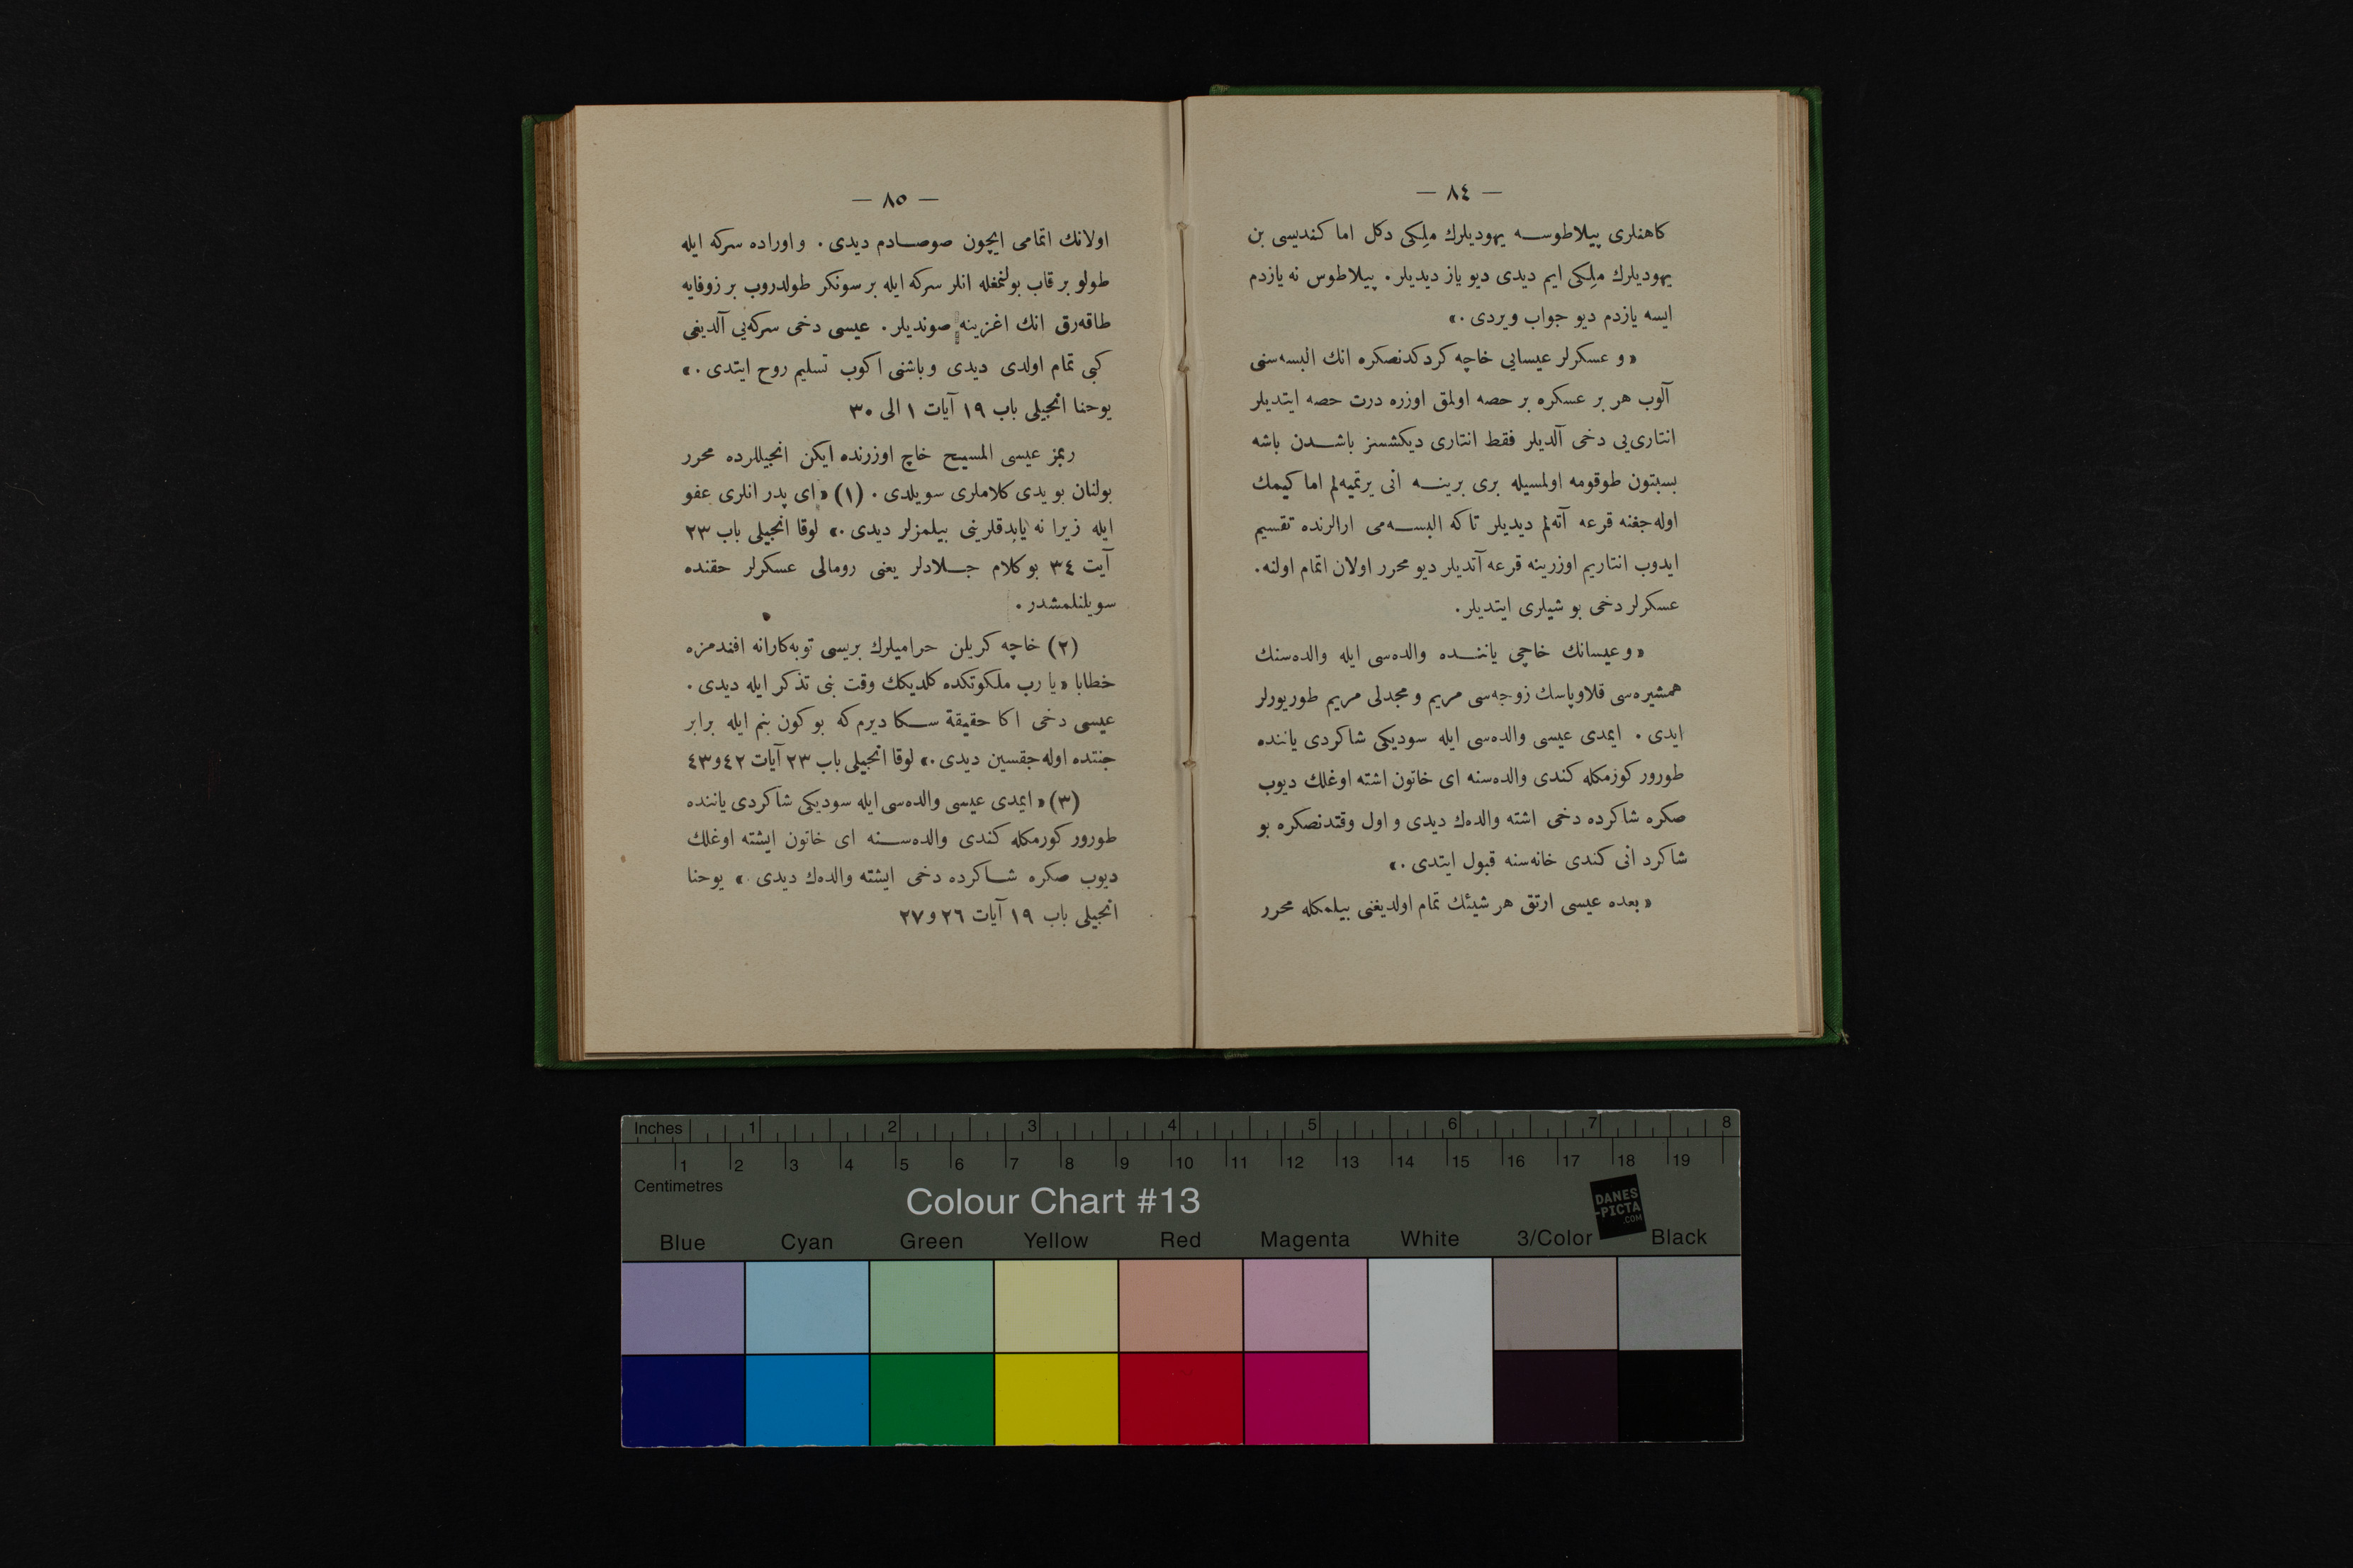 — ٨٤ —
كاهنلرى پيلاطوســه يهوديلرك ملِكى دكل اما كنديسى بن
يهوديلرك ملِكى ايم ديدى ديو ياز ديديلر. پيلاطوس نه يازدم
ايسه يازدم ديو جواب ويردى.»
«و عسكرلر عيسايى خاچه كردكدنصكره انك البسه‌سنى
آلوب هر بر عسكره بر حصه اولمق اوزره درت حصه ايتديلر
انتارى‌يى دخى آلديلر فقط انتارى ديكشسز باشــدن باشه
بسبتون طوقومه اولمسيله برى برينــه انى يرتميه‌لم اما كيمك
اوله‌جغنه قرعه آته‌لم ديديلر تاكه البســه‌مى ارالرنده تقسيم
ايدوب انتاريم اوزرينه قرعه آتديلر ديو محرر اولان اتمام اولنه.
عسكرلر دخى بو شيلرى ايتديلر.
«وعيسانك خاچى ياننــده والده‌سى ايله والده‌سنك
همشيره‌سى قلاوپاسك زوجه‌سى مريم و مجدلى مريم طوريورلر
ايدى. ايمدى عيسى والده‌سى ايله سوديكى شاكردى ياننده
طورور كوزمكله كندى والده‌سنه اى خاتون اشته اوغلك ديوب
صكره شاكرده دخى اشته والده‌ك ديدى و اول وقتدنصكره بو
شاكرد انى كندى خانه‌سنه قبول ايتدى.»
«بعده عيسى ارتق هر شيئك تمام اولديغنى بيلمكله محرر
— ٨٥ —
اولانك اتمامى ايچون صوصــادم ديدى. و اوراده سركه ايله
طولو بر قاب بولنمغله انلر سركه ايله بر سونكر طولدروب بر زوفايه
طاقه‌رق انك اغزينه صونديلر. عيسى دخى سركه‌يى آلديغى
كبى تمام اولدى ديدى وباشنى اكوب تسليم روح ايتدى.»
يوحنا انجيلى باب ١٩ آيات ١ الى ٣٠
ربمز عيسى المسيح خاچ اوزرنده ايكن انجيللرده محرر
بولنان بو يدى كلاملرى سويلدى. (١) «اى پدر انلرى عفو
ايله زيرا نه يابدقلرينى بيلمزلر ديدى.» لوقا انجيلى باب ٢٣
آيت ٣٤ بوكلام جــلادلر يعنى رومالى عسكرلر حقنده
سويلنلمشدر.
(٢) خاچه كريلن حراميلرك بريسى توبه‌كارانه افندمزه
خطابا «يا رب ملكوتكده كلديكك وقت بنى تذكر ايله ديدى.
عيسى دخى اكا حقيقة ســكا ديرم كه بو كون بنم ايله برابر
جنتده اوله‌جقسين ديدى.» لوقا انجيلى باب ٢٣ آيات ٤٢و٤٣
(٣) «ايمدى عيسى والده‌سى ايله سوديكى شاكردى ياننده
طورور كورمكله كندى والده‌ســنه اى خاتون ايشته اوغلك
ديوب صكره شــاكرده دخى ايشته والده‌ك ديدى.» يوحنا
انجيلى باب ١٩ آيات ٢٦ و٢٧
Inches 1 2 3 4 5 6 7 8
1 2 3 4 5 6 7 8 9 10 11 12 13 14 15 16 17 18 19
Centimetres
Colour Chart #13
DANES
-PICTA
.COM
Blue Cyan Green Yellow Red Magenta White 3/Color Black